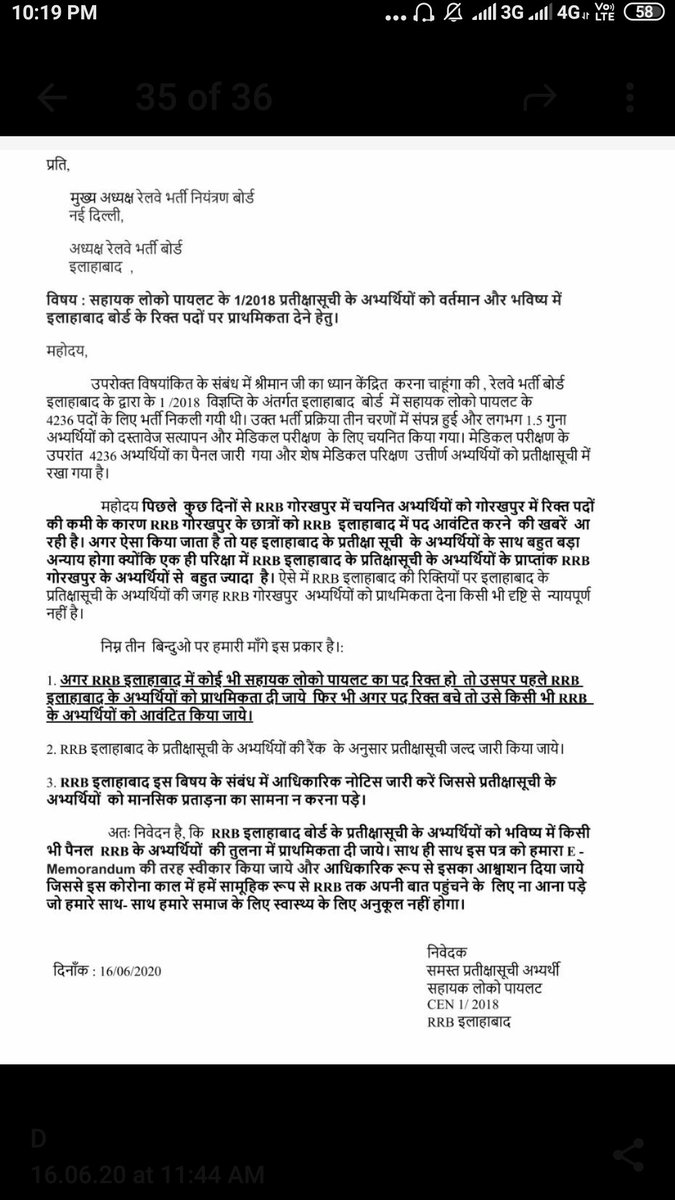 10:19 PM
3G 4G Vo) LTE 58
35 of 36
प्रति,
मुख्य अध्यक्ष रेलवे भर्ती नियंत्रण बोर्ड
नई दिल्ली,
अध्यक्ष रेलवे भर्ती बोर्ड
इलाहाबाद ,
विषय : सहायक लोको पायलट के 1/2018 प्रतीक्षासूची के अभ्यर्थियों को वर्तमान और भविष्य में
इलाहाबाद बोर्ड के रिक्त पदों पर प्राथमिकता देने हेतु।
महोदय,
उपरोक्त विषयांकित के संबंध में श्रीमान जी का ध्यान केंद्रित करना चाहूंगा की , रेलवे भर्ती बोर्ड
इलाहाबाद के द्वारा के 1 /2018 विज्ञप्ति के अंतर्गत इलाहाबाद बोर्ड में सहायक लोको पायलट के
4236 पदों के लिए भर्ती निकली गयी थी। उक्त भर्ती प्रक्रिया तीन चरणों में संपन्न हुई और लगभग 1.5 गुना
अभ्यर्थियों को दस्तावेज सत्यापन और मेडिकल परीक्षण के लिए चयनित किया गया। मेडिकल परीक्षण के
उपरांत 4236 अभ्यर्थियों का पैनल जारी गया और शेष मेडिकल परिक्षण उत्तीर्ण अभ्यर्थियों को प्रतीक्षासूची में
रखा गया है।
महोदय पिछले कुछ दिनों से RRB गोरखपुर में चयनित अभ्यर्थियों को गोरखपुर में रिक्त पदों
की कमी के कारण RRB गोरखपुर के छात्रों को RRB इलाहाबाद में पद आवंटित करने की खबरें आ
रही है। अगर ऐसा किया जाता है तो यह इलाहाबाद के प्रतीक्षा सूची के अभ्यर्थियों के साथ बहुत बड़ा
अन्याय होगा क्योंकि एक ही परिक्षा में RRB इलाहाबाद के प्रतिक्षासूची के अभ्यर्थियों के प्राप्तांक RRB
गोरखपुर के अभ्यर्थियों से बहुत ज्यादा है। ऐसे में RRB इलाहाबाद की रिक्तियों पर इलाहाबाद के
प्रतिक्षासूची के अभ्यर्थियों की जगह RRB गोरखपुर अभ्यर्थियों को प्राथमिकता देना किसी भी दृष्टि से न्यायपूर्ण
नहीं है।
निम्न तीन बिन्दुओ पर हमारी माँगे इस प्रकार है।:
1. अगर RRB इलाहाबाद में कोई भी सहायक लोको पायलट का पद रिक्त हो तो उसपर पहले RRB
इलाहाबाद के अभ्यर्थियों को प्राथमिकता दी जाये फिर भी अगर पद रिक्त बचे तो उसे किसी भी RRB
के अभ्यर्थियों को आवंटित किया जाये।
2. RRB इलाहाबाद के प्रतीक्षासूची के अभ्यर्थियों की रैंक के अनुसार प्रतीक्षासूची जल्द जारी किया जाये।
3. RRB इलाहाबाद इस बिषय के संबंध में आधिकारिक नोटिस जारी करें जिससे प्रतीक्षासूची के
अभ्यर्थियों को मानसिक प्रताड़ना का सामना न करना पड़े।
अतः निवेदन है, कि RRB इलाहाबाद बोर्ड के प्रतीक्षासूची के अभ्यर्थियों को भविष्य में किसी
भी पैनल RRB के अभ्यर्थियों की तुलना में प्राथमिकता दी जाये। साथ ही साथ इस पत्र को हमारा E -
Memorandum की तरह स्वीकार किया जाये और आधिकारिक रूप से इसका आश्वाशन दिया जाये
जिससे इस कोरोना काल में हमें सामूहिक रूप से RRB तक अपनी बात पहुंचने के लिए ना आना पड़े
जो हमारे साथ- साथ हमारे समाज के लिए स्वास्थ्य के लिए अनुकूल नहीं होगा।
निवेदक
दिनाँक : 16/06/2020
समस्त प्रतीक्षासूची अभ्यर्थी
सहायक लोको पायलट
CEN 1/ 2018
RRB इलाहाबाद
D
16.06.20 at 11:44 AM